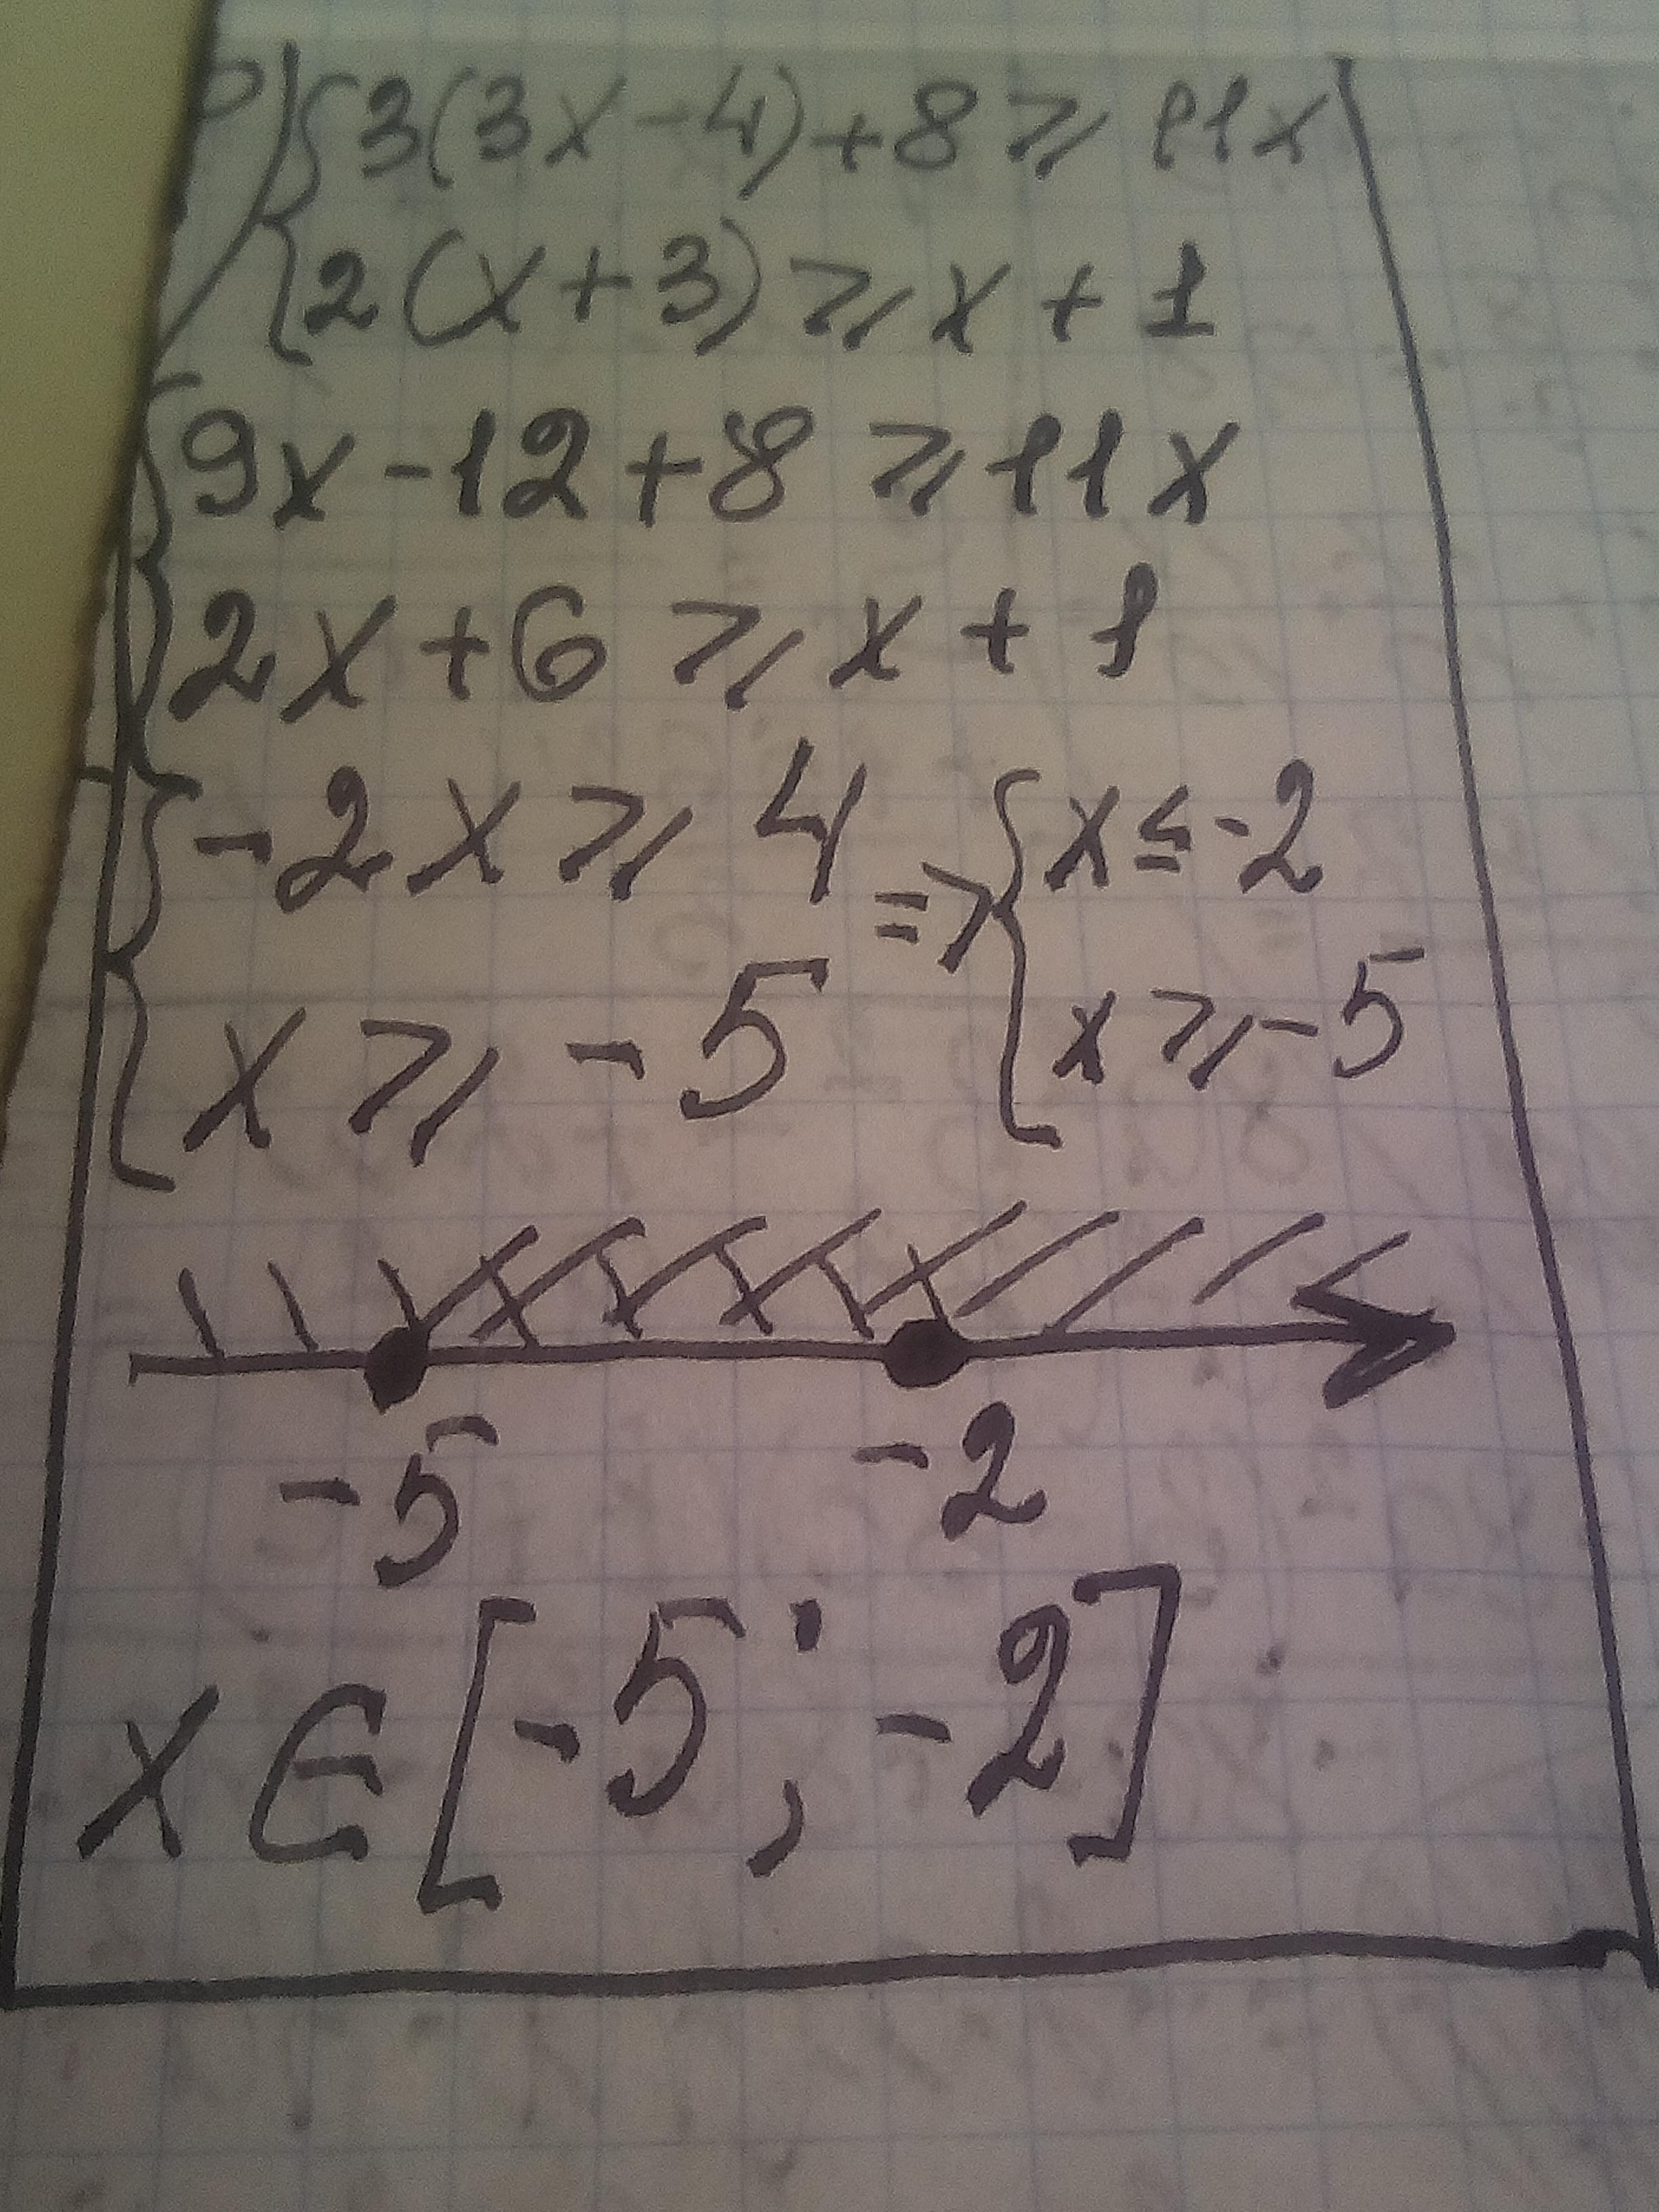 {3(3x-4)+8 ⩾ 11x
{2(x+3) ⩾ x + 1
{9x -12 +8 ⩾ 11x
{2x +6 ⩾ x + 1
{-2x ⩾ 4 => {x ≤ -2
{x ⩾ -5 {x ⩾ -5
-5 -2
x ∈ [-5; -2]